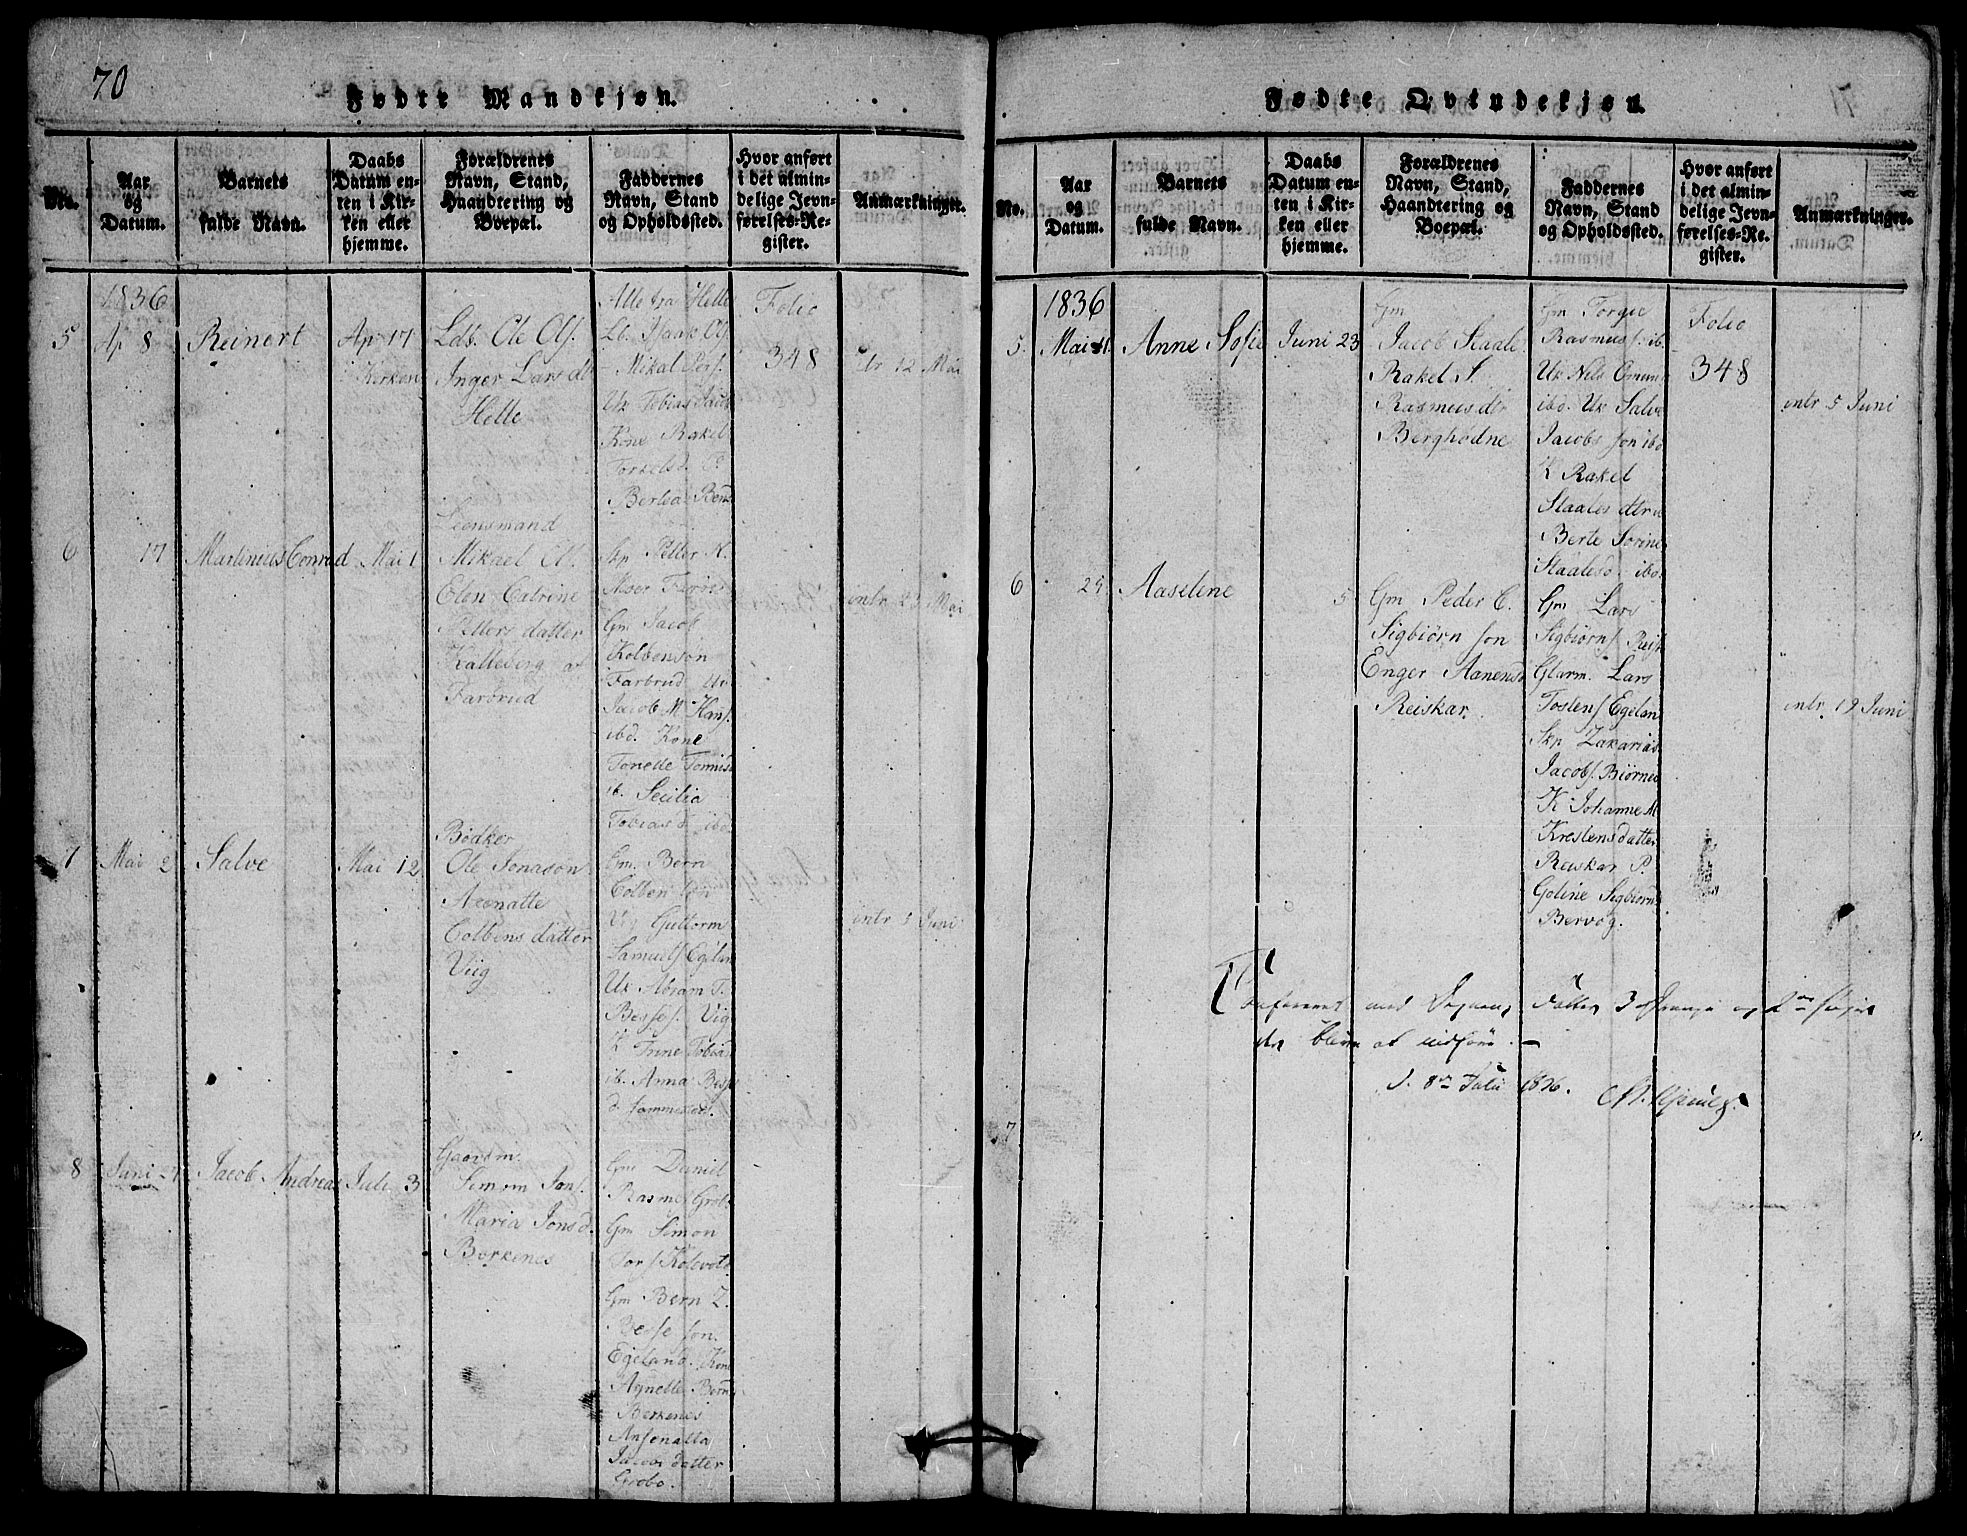 70
Fødte Mandkjøn.
No.
Aar og Datum.
Barnets fulde Navn.
Daabs Datum enten i Kirken eller hjemme.
Forældrenes Navn, Stand, Haandtering og Boepæl.
Faddernes Navn, Stand og Opholdssted.
Hvor anført i det almindelige Jevnførelses-Register.
Anmærkninger.
1836
5
Ap 8
Reinert
Ap 17
Kirken
Lds. Ole Ols.
Inger Lars dt
Helle
Alle fra Helle
Lb. Isaak Ols.
Mikal Pers.
Uk Tobias
Kone Rakel
Torkelsd. P.
Berlea Bens
Folio
348
12 Mai
6
17
Martinius Conrad
Mai 1
Leensmand
Mikael Ol.
Elen Catrine
Petters datter
Kalleberg af
Farbrud
Skp Petter K.
Moser
Gm Jacob
Kolbenson
Farbrud Uk
Jacob M Hans.
ibd. Kone
Tonette Tomisd
ib. Secilia
Tobias d. ibd
intr 23 Mai
7
Mai 2
Salve
Mai 12
Bødker
Ole Jonason
Axenatte
Colbens datter
Viig
Gm. Bern
Colben son
Vig Guttorm
Samuels Egelan
Uk Abram T.
Besses. Vig
K Trine Tobiad
ib. Anna Besse
d. Sammested.
intr 5 Juni
8
Juni
Jacob Andreas
Juli 3
Gaardm.
Simon Jons.
Maria Jonsd.
Borkenes
Gm Daniel
Rasmes Grobo
Gm Simon
Tors Kolevold
Gm Bern Z.
Besse son
Egeland. Kone
Agnette Berns
Berkenes
Ansenatta
Jacobs datter
Grobo.
71
Fødte Qvindekjøn.
No.
Aar og Datum.
Barnets fulde Navn.
Daabs Datum enten i Kirken eller hjemme.
Forældrenes Navn, Stand, Haandtering og Boepæl.
Faddernes Navn, Stand og Opholdssted.
Hvor anført i det almindelige Jevnførelses-Register.
Anmærkninger.
1836
5.
Mai 11.
Anne Sofie
Juni 23
Gm
Jacob Staale
Rakel S.
Rasmusdtr
Berghødne
Gm Torgie
Rasmuss. ib.
Uk Nils Omun
ibd. Uk Salve
Jacobs son ibd
K Rakel
Staales dtr
Berte Sorine
Staalesd. ibd.
Folio
348
intr 5 Juni
6
25
Aaselene
5
Gm Peder C.
Sigbiørn son
Enger Aanensd
Reiskar.
Gm Lars
Sigbiørns Reisk
Glarm. Lars
Tostens Egelan
Skp Zakarias
Jacobs. Biørne
K Johanne M
Krestensdatter
Reiskar P.
Goline Sigbiørnsd
Bervog.
intr. 19 Juni
Confereret med
blive at indføre. —
d. 8de Juli 1836.
7